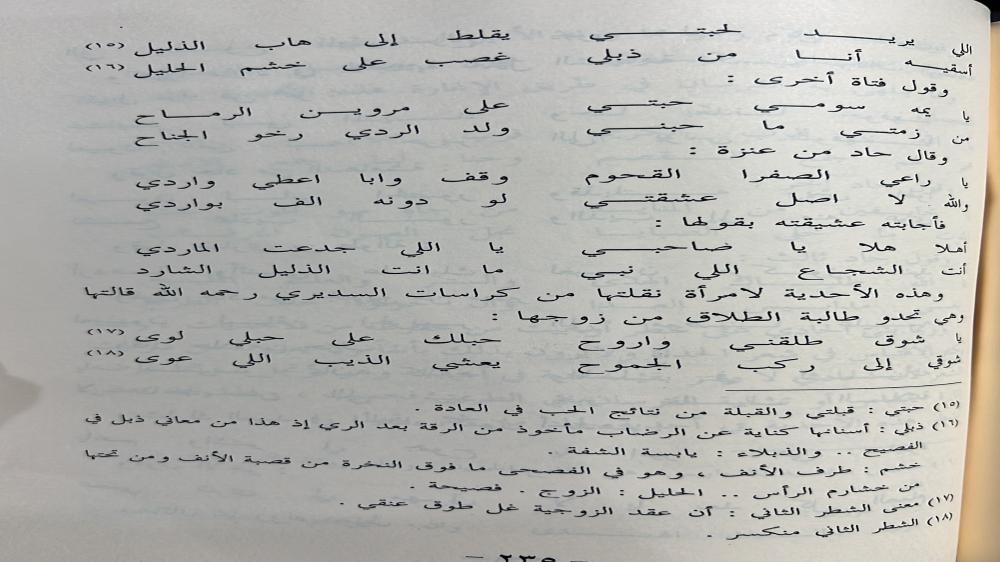 اللي يريد لحبتي يقلط إلى هاب الذليل (١٥)
أسقيه أنا من ذبلي غصب على خشم الحليل (١٦)
وقول فتاة أخرى :
يا يمه سومي حبتي على مروين الرماح
من زمتي ما حبني ولد الردي رخو الجناح
وقال حاد من عنزة :
يا راعي الصفرا القحوم وقف وابا اعطي واردي
والله لا اصل عشقتي لو دونه الف بواردي
فأجابته عشيقته بقولها :
أهلا هلا يا صاحبي يا اللي جدعت الماردي
أنت الشجاع اللي نبي ما انت الذليل الشارد
وهذه الأحدية لامرأة نقلتها من كراسات السديري رحمه الله قالتها
وهي تحدو طالبة الطلاق من زوجها :
يا شوق طلقني واروح حبلك على حبلي لوى (١٧)
شوقي إلى ركب الجموح يعشي الذيب اللي عوى (١٨)
(١٥) حبتي : قبلتي والقبلة من نتائج الحب في العادة .
(١٦) ذبلي : أسنانها كناية عن الرضاب مأخوذ من الرقة بعد الري إذ هذا من معاني ذبل في
الفصيح .. والذبلاء : يابسة الشفة .
خشم : طرف الأنف ، وهو في الفصحى ما فوق النخرة من قصبة الأنف ومن تحتها
من خشارم الرأس .. الحليل : الزوج . فصيحة .
(١٧) معنى الشطر الثاني : أن عقد الزوجية غل طوق عنقي .
(١٨) الشطر الثاني منكسر .
- ٢٣٩ -